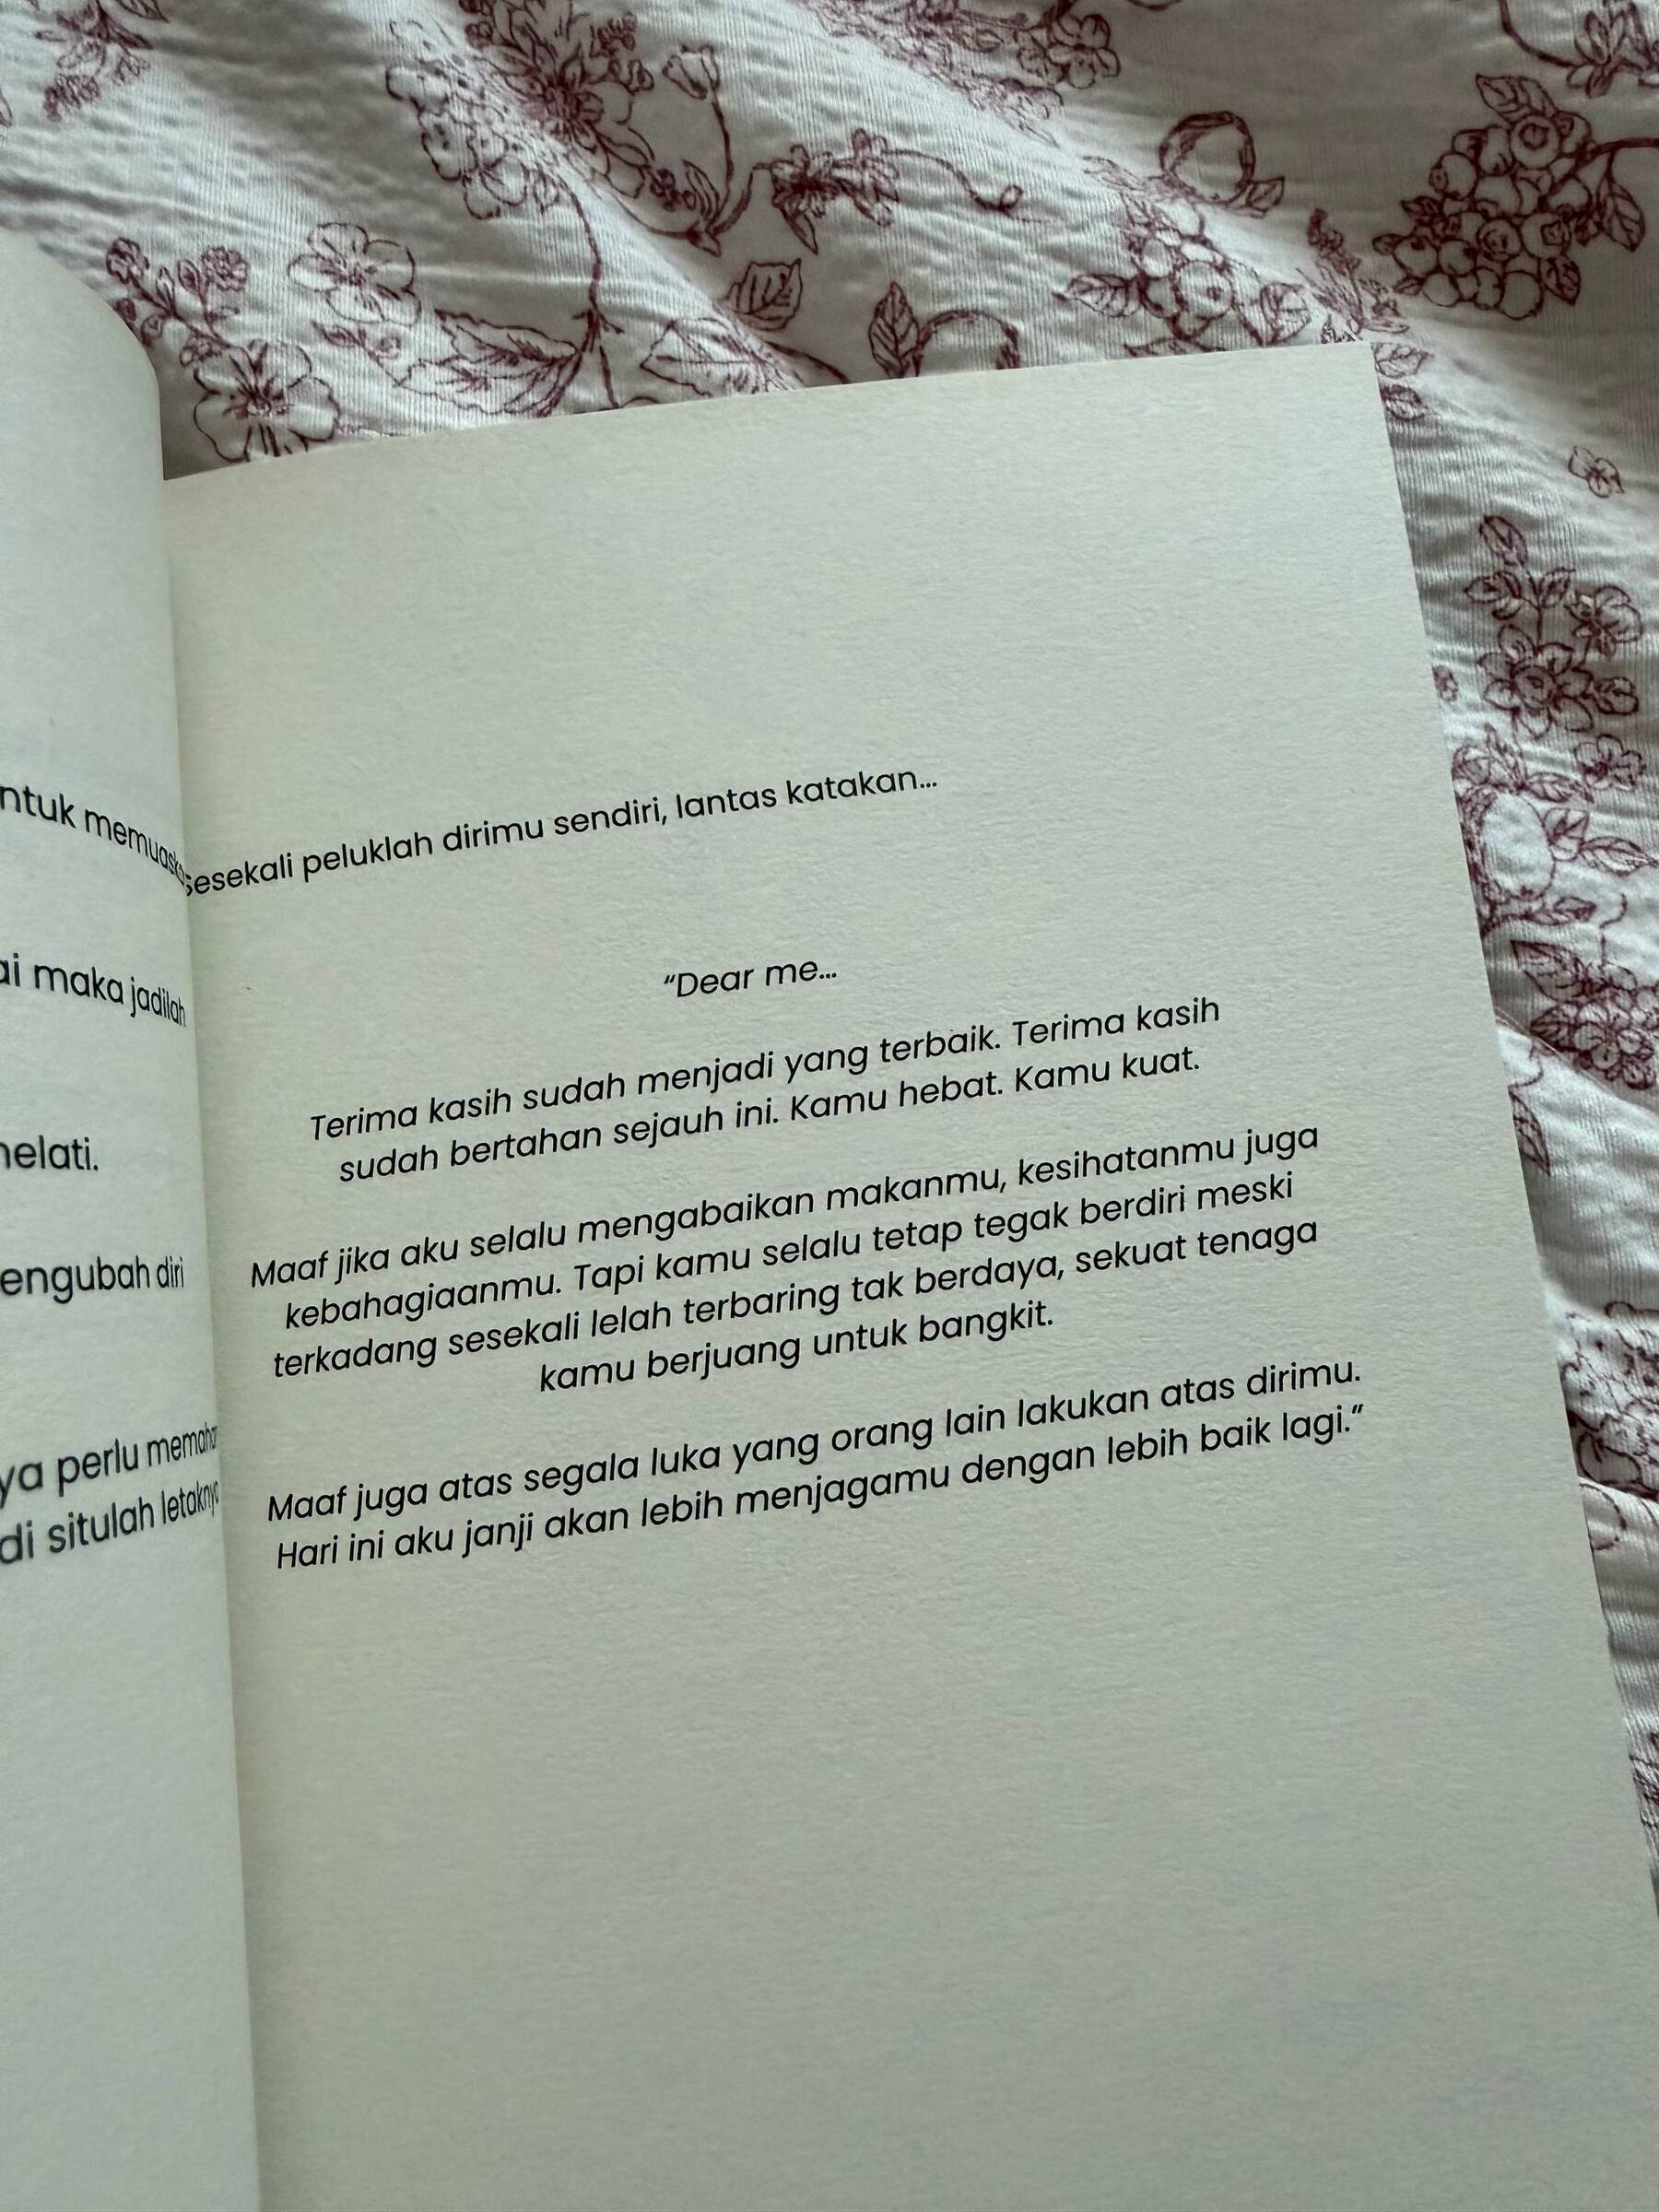 ntuk
ai maka jadilah
elati.
engubah diri
ya perlu
di situlah
sesekali peluklah dirimu sendiri, lantas katakan...
"Dear me...
Terima kasih sudah menjadi yang terbaik. Terima kasih
sudah bertahan sejauh ini. Kamu hebat. Kamu kuat.
Maaf jika aku selalu mengabaikan makanmu, kesihatanmu juga
kebahagiaanmu. Tapi kamu selalu tetap tegak berdiri meski
terkadang sesekali lelah terbaring tak berdaya, sekuat tenaga
kamu berjuang untuk bangkit.
Maaf juga atas segala luka yang orang lain lakukan atas dirimu.
Hari ini aku janji akan lebih menjagamu dengan lebih baik lagi."